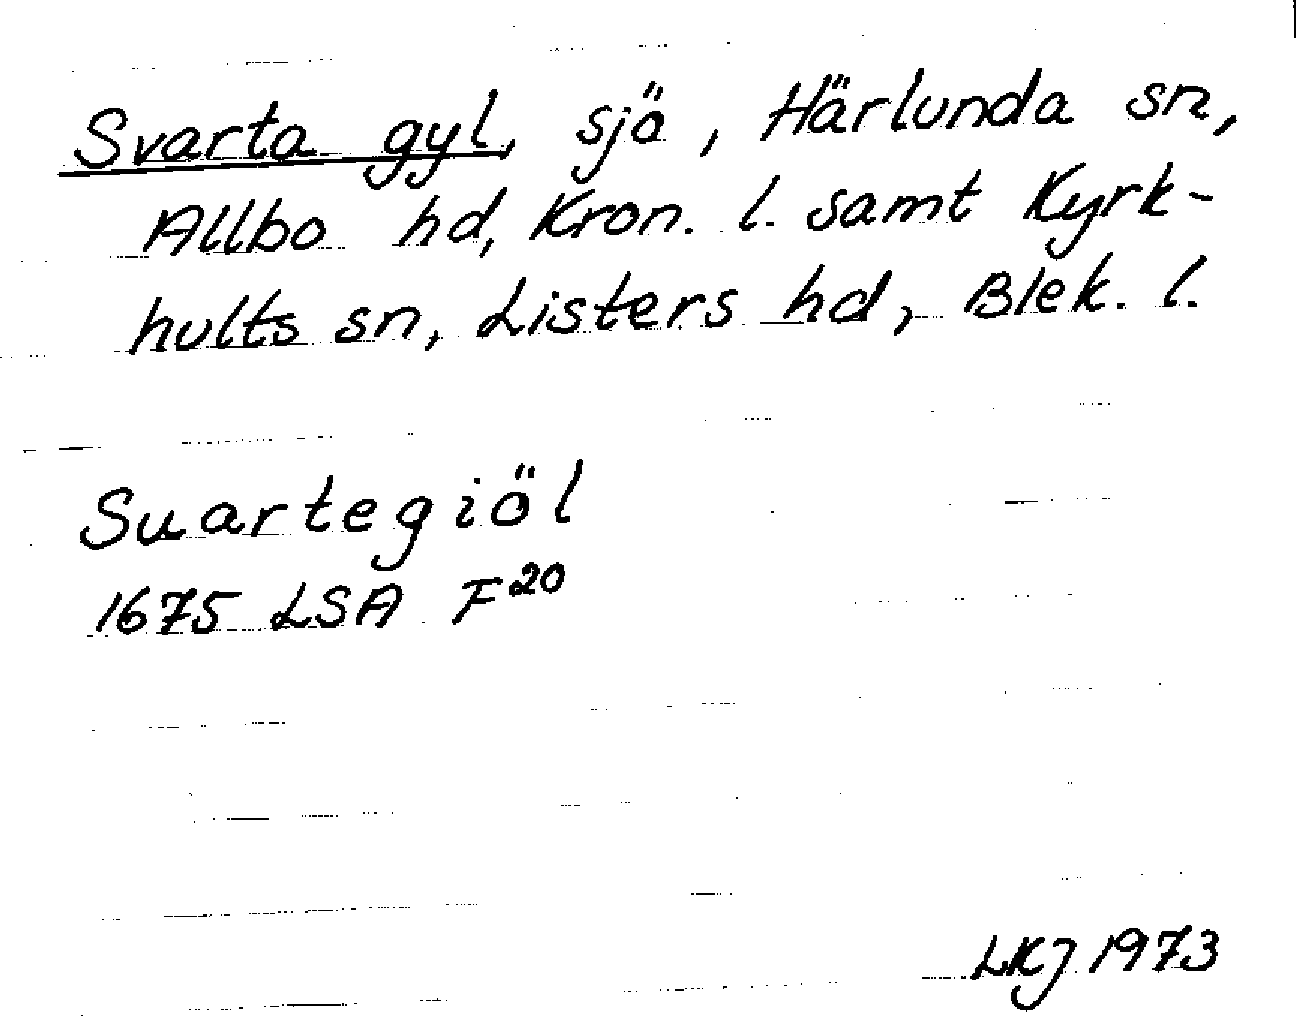 Svarta gyl, sjö, Härlunda sn,
Allbo hd, Kron. l. samt Kyrk-
hults sn, Listers hd, Blek. l.
Suartegiöl
1675 LSA F20
LKJ 1973